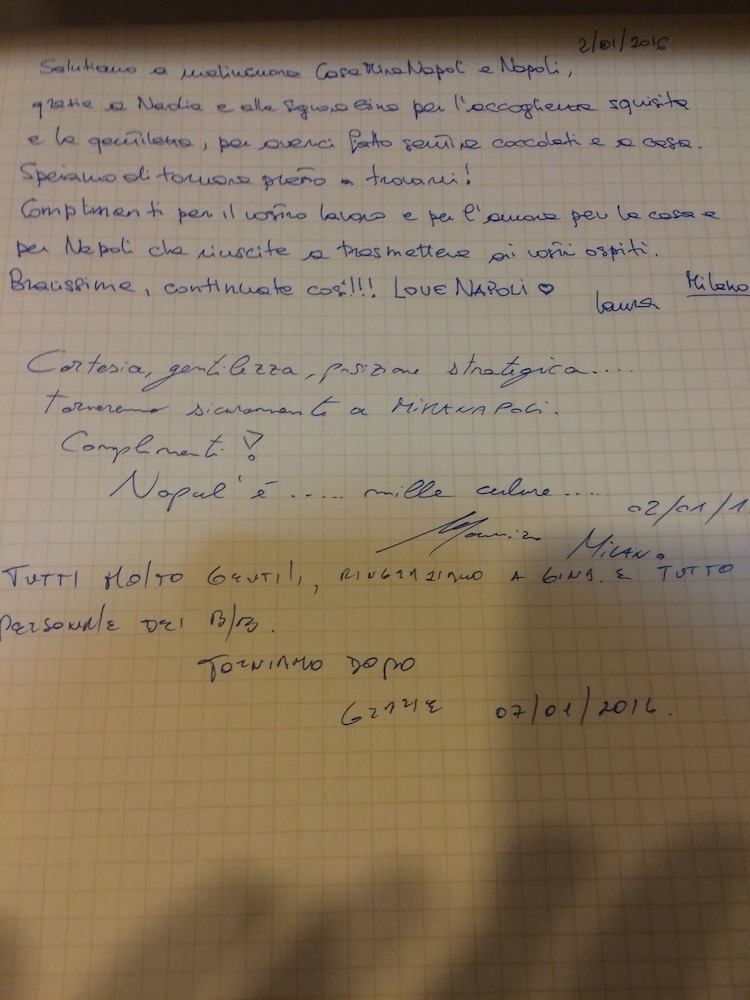 2/01/2016
Salutiamo a malincuore Casa MiraNapoli e Napoli,
grazie a Nadia e alla Signora Gina per l'accoglienza squisita
e la gentilezza, per averci fatto sentire coccolati e a casa.
Speriamo di tornare presto a trovarvi!
Complimenti per il vostro lavoro e per l'amore per la casa e
per Napoli che riuscite a trasmettere ai vostri ospiti.
Bravissime, continuate così!!! LOVE NAPOLI ♡
Laura Milano
Cortesia, gentilezza, posizione strategica....
Torneremo sicuramente a MIRANAPOLI.
Complimenti!
Napul'è ..... mille culure....
02/01/1
Maurizio MILANO
TUTTI MOLTO GENTILI, RINGRAZIAMO A GINA E TUTTO
PERSONALE DEL B/B.
TORNIAMO DOPO
GRAZIE 07/01/2016.